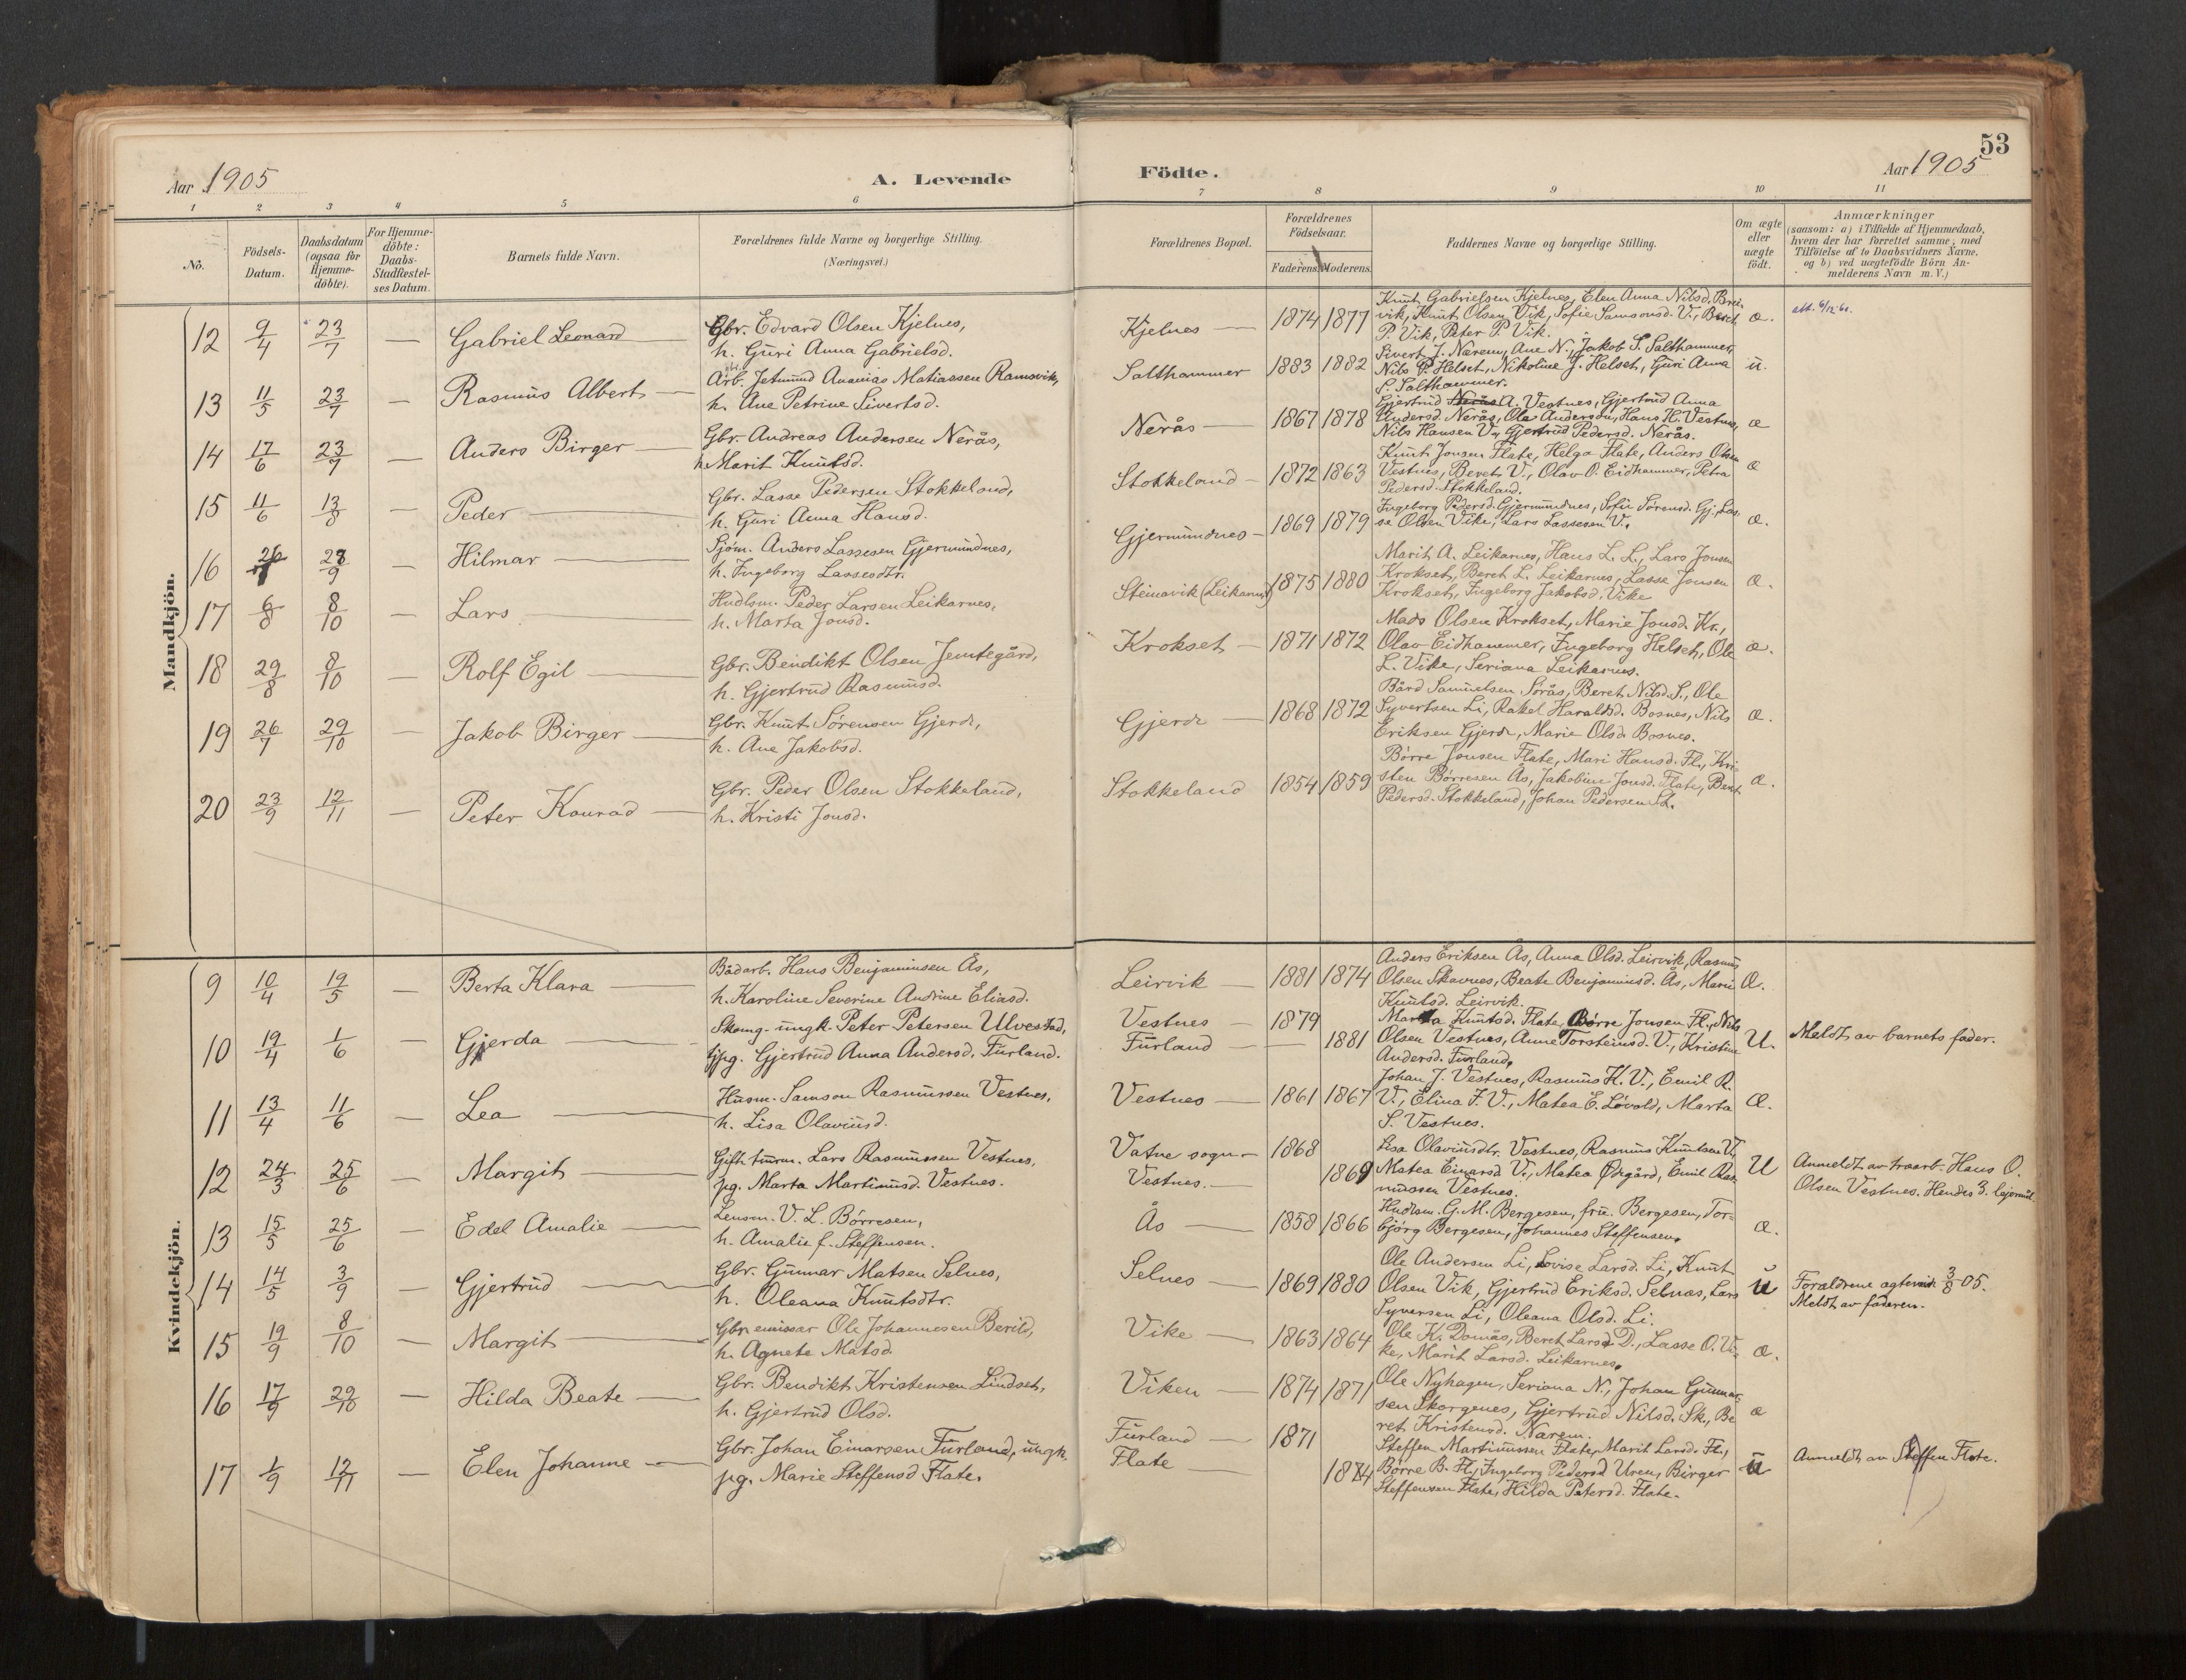 53
Aar 1905
A. Levende
Födte.
Aar 1905
1 2 3 4 5 6 7 8 9 10 11
No.
Födsels-
Datum.
Daabsdatum
(ogsaa for
Hjemme-
döbte).
For Hjemme-
döbte:
Daabs-
Stadfæstel-
ses Datum.
Barnets fulde Navn.
Forældrenes fulde Navne og borgerlige Stilling.
(Næringsvei.)
Forældrenes Bopæl.
Forældrenes
Födselsaar.
Faderens. Moderens.
Faddernes Navne og borgerlige Stilling.
Om ægte
eller
uægte
födt.
Anmærkninger
(saasom: a) i Tilfælde af Hjemmedaab,
hvem der har forrettet samme, med
Tilföielse af to Daabsvidners Navne,
og b) ved uægtefödte Börn An-
melderens Navn m. V.)
Mandkjön.
12 9/4 23/7 — Gabriel Leonard
Gbr. Edvard Olsen Kjelnes,
h. Guri Anna Gabrielsd.
Kjelnes — 1874 1877
Knut Gabrielsen Kjelnes, Elen Anna Nilsd. Brei-
vik, Knut Olsen Vik, Sofie Samsonsd. V., Beret
P. Vik, Peter P. Vik.
æ.
att. 6/12 60.
13 11/5 23/7 — Rasmus Albert —
Arb. Jetmund Ananias Matiassen Ramsvik,
h. Ane Petrine Sivertsd.
Salthammer 1883 1882
Sivert J. Nærem, Ane N., Jakob S. Salthammer,
Nils P. Helset, Nikoline J. Helset, Guri Anna
S. Salthammer.
u.
14 17/6 23/7 — Anders Birger —
Gbr. Andreas Andersen Nerås,
h. Marit Knutsd.
Nerås — 1867 1878
Gjertrud Nerås A. Vestnes, Gjertrud Anna
Andersd. Nerås, Ole Andersen, Hans H. Vestnes,
Nils Hansen V., Gjertrud Pedersd. Nerås.
æ
15 11/6 13/8 — Peder —
Gbr. Lasse Pedersen Stokkeland,
h. Guri Anna Hansd.
Stokkeland — 1872 1863
Knut Jonsen Flate, Helga Flate, Anders Olsen
Vestnes, Beret V., Olav O. Eidhammer, Petra
Pedersd. Stokkeland.
æ
16 26/7 23/9 — Hilmar —
Sjöm. Anders Lassesen Gjermundnes,
h. Ingeborg Lassesdtr.
Gjermundnes — 1869 1879
Ingeborg Pedersd. Gjermundnes, Sofie Sörensd. Gj., Las-
se Olsen Vike, Lars Lassesen V.
æ.
17 6/8 8/10 — Lars
Hndlsm. Peder Larsen Leikarnes,
h. Marta Jonsd.
Steinavik (Leikarnes) 1875 1880
Marit A. Leikarnes, Hans L. L., Lars Jonsen
Krokset, Beret L. Leikarnes, Lasse Jonsen
Krokset, Ingeborg Jakobsd. Vike
æ.
18 29/8 8/10 — Rolf Egil —
Gbr. Bendikt Olsen Jemtegård,
h. Gjertrud Rasmusd.
Krokset — 1871 1872
Mads Olsen Krokset, Marie Jonsd. Kr.,
Olav Eidhammer, Ingeborg Helset, Ole
L. Vike, Seriana Leikarnes.
æ.
19 26/7 29/10 — Jakob Birger —
Gbr. Knut Sörensen Gjerde,
h. Ane Jakobsd.
Gjerde — 1868 1872
Bård Samuelsen Sørås, Beret Nilsd. S., Ole
Syvertsen Li, Rakel Haraldsd. Bosnes, Nils
Eriksen Gjerde, Marie Olsd. Bosnes.
æ.
20 23/9 12/11 — Peter Konrad —
Gbr. Peder Olsen Stokkeland,
h. Kristi Jonsd.
Stokkeland 1854 1859
Børre Jonsen Flate, Mari Hansd. Fl., Kri-
sten Børresen Ås, Jakobine Jonsd. Flate, Beret
Pedersd. Stokkeland, Johan Pedersen St.
æ.
Kvindekjön.
9 10/4 19/5 — Berta Klara —
Bådarb. Hans Benjaminsen Ås,
h. Karoline Severine Andrine Eliasd.
Leirvik — 1881 1874
Anders Eriksen Ås, Anna Olsd. Leirvik, Rasmus
Olsen Skavnes, Beate Benjaminsd. Ås, Marie
Knutsd. Leirvik.
Æ.
10 19/4 1/6 — Gjerda —
Skomg. ungk. Peter Petersen Ulvestad,
tjpg. Gjertrud Anna Andersd. Furland.
Vestnes — 1879
Furland — 1881
Marta Knutsd. Flate, Børre Jonsen Fl., Nils
Olsen Vestnes, Anne Torsteinsd. V., Kristine
Andersd. Furland.
U.
Meldt av barnets fader.
11 13/4 11/6 — Lea —
Husm. Samson Rasmussen Vestnes,
h. Lisa Olaviusd.
Vestnes — 1861 1867
Johan J. Vestnes, Rasmus K. V., Emil R.
V., Elina F. V., Matea E. Løvold, Marta
S. Vestnes.
Æ.
12 24/3 25/6 — Margit —
Gift tmrm. Lars Rasmussen Vestnes,
pg. Marta Martinusd. Vestnes.
Vatne sogn — 1868
Vestnes. — 1869
Lisa Olaviusdtr. Vestnes, Rasmus Knutsen V.,
Matea Einarsd V., Matea Ødegård, Emil Ras-
mussen Vestnes.
U
Anmeldt av traarb. Hans O.
Olsen Vestnes. Hendes 3. lejermål.
13 15/5 25/6 — Edel Amalie —
Lensm. V. L. Börresen,
h. Amalie f. Steffensen.
Ås — 1858 1866
Hndlsm. G. M. Bergesen, frue Bergesen, Tor-
björg Bergesen, Johannes Steffensen.
æ.
14 14/5 3/9 — Gjertrud —
Gbr. Gunnar Matsen Selnes,
h. Oleana Knutsdtr.
Selnes — 1869 1880
Ole Andersen Li, Lovise Larsd. Li, Knut
Olsen Vik, Gjertrud Eriksd. Selnæs, Lars
Syversen Li, Oleana Olsd. Li.
u
Forældrene ægteviet 3/8 05.
Meldt av faderen.
15 19/9 8/10 — Margit —
Gbr. emissær Ole Johannesen Berild,
h. Agnete Matsd
Vike — 1863 1864
Ole K. Domås, Beret Larsd D., Lasse O. Vi-
ke, Marit Larsd. Leikarnes.
æ.
16 17/9 29/10 — Hilda Beate —
Gbr. Bendikt Kristensen Lindset,
h. Gjertrud Olsd.
Viken — 1874 1871
Ole Nyhagen, Seriana N., Johan Gunnar-
sen Skorgenes, Gjertrud Nilsd. Sk., Be
ret Kristensd. Nærem.
æ
17 1/9 12/11 — Elen Johanne —
Gbr. Johan Einarsen Furland, ungk.
pg. Marie Steffensd Flate.
Furland — 1871
Flate 1874
Steffen Martinussen Flate, Marit Larsd. Fl.,
Børre B. Fl., Ingeborg Pedersd Uren, Birger
Steffensen Flate, Hilda Petersd. Flate.
u
Anmeldt av Steffen Flate.